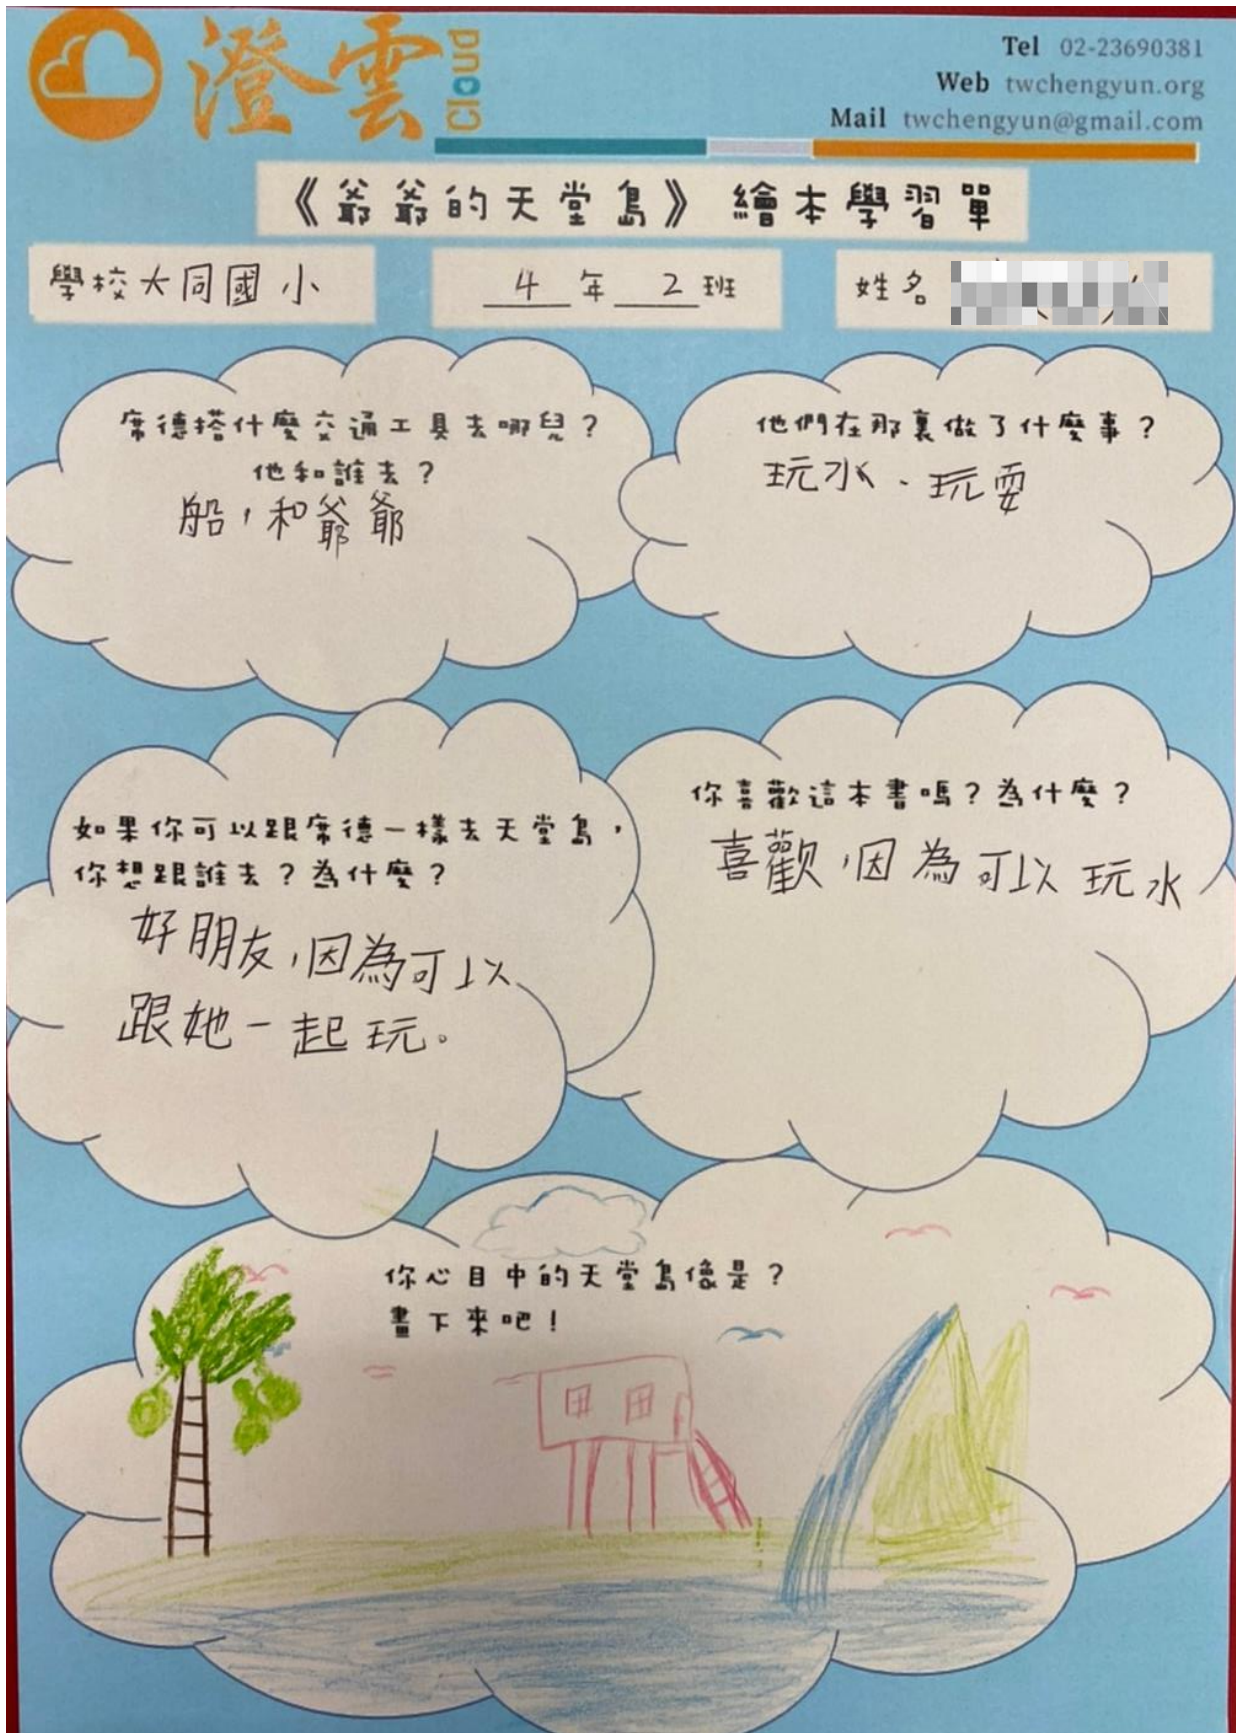 澄雲 Cloud
Tel 02-23690381
Web twchengyun.org
Mail twchengyun@gmail.com
《爺爺的天堂島》繪本學習單
學校大同國小 4年2班 姓名
席德搭什麼交通工具去哪兒?
他和誰去?
船,和爺爺
他們在那裏做了什麼事?
玩水、玩耍
如果你可以跟席德一樣去天堂島,
你想跟誰去?為什麼?
好朋友,因為可以
跟她一起玩。
你喜歡這本書嗎?為什麼?
喜歡,因為可以玩水
你心目中的天堂島像是?
畫下來吧!